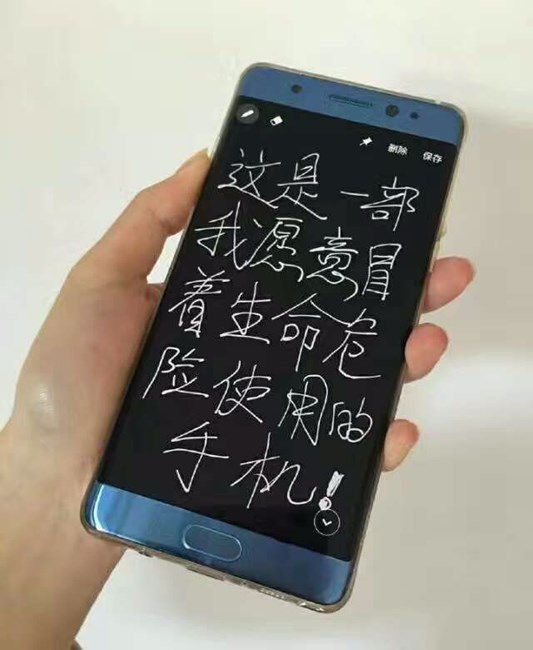 删除 保存
这是一部
我愿意冒
着生命危
险使用的
手机!